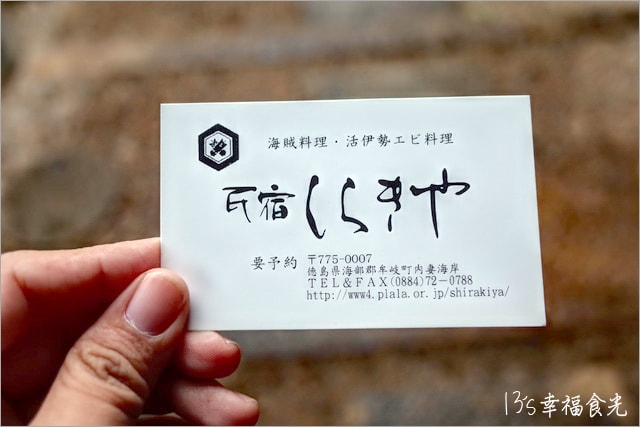 海賊料理・活伊勢エビ料理
民宿 しらきや
要予約 〒775-0007
徳島県海部郡牟岐町内妻海岸
TEL&FAX(0884)72-0788
http://www4.piala.or.jp/shirakiya/
13's幸福食光